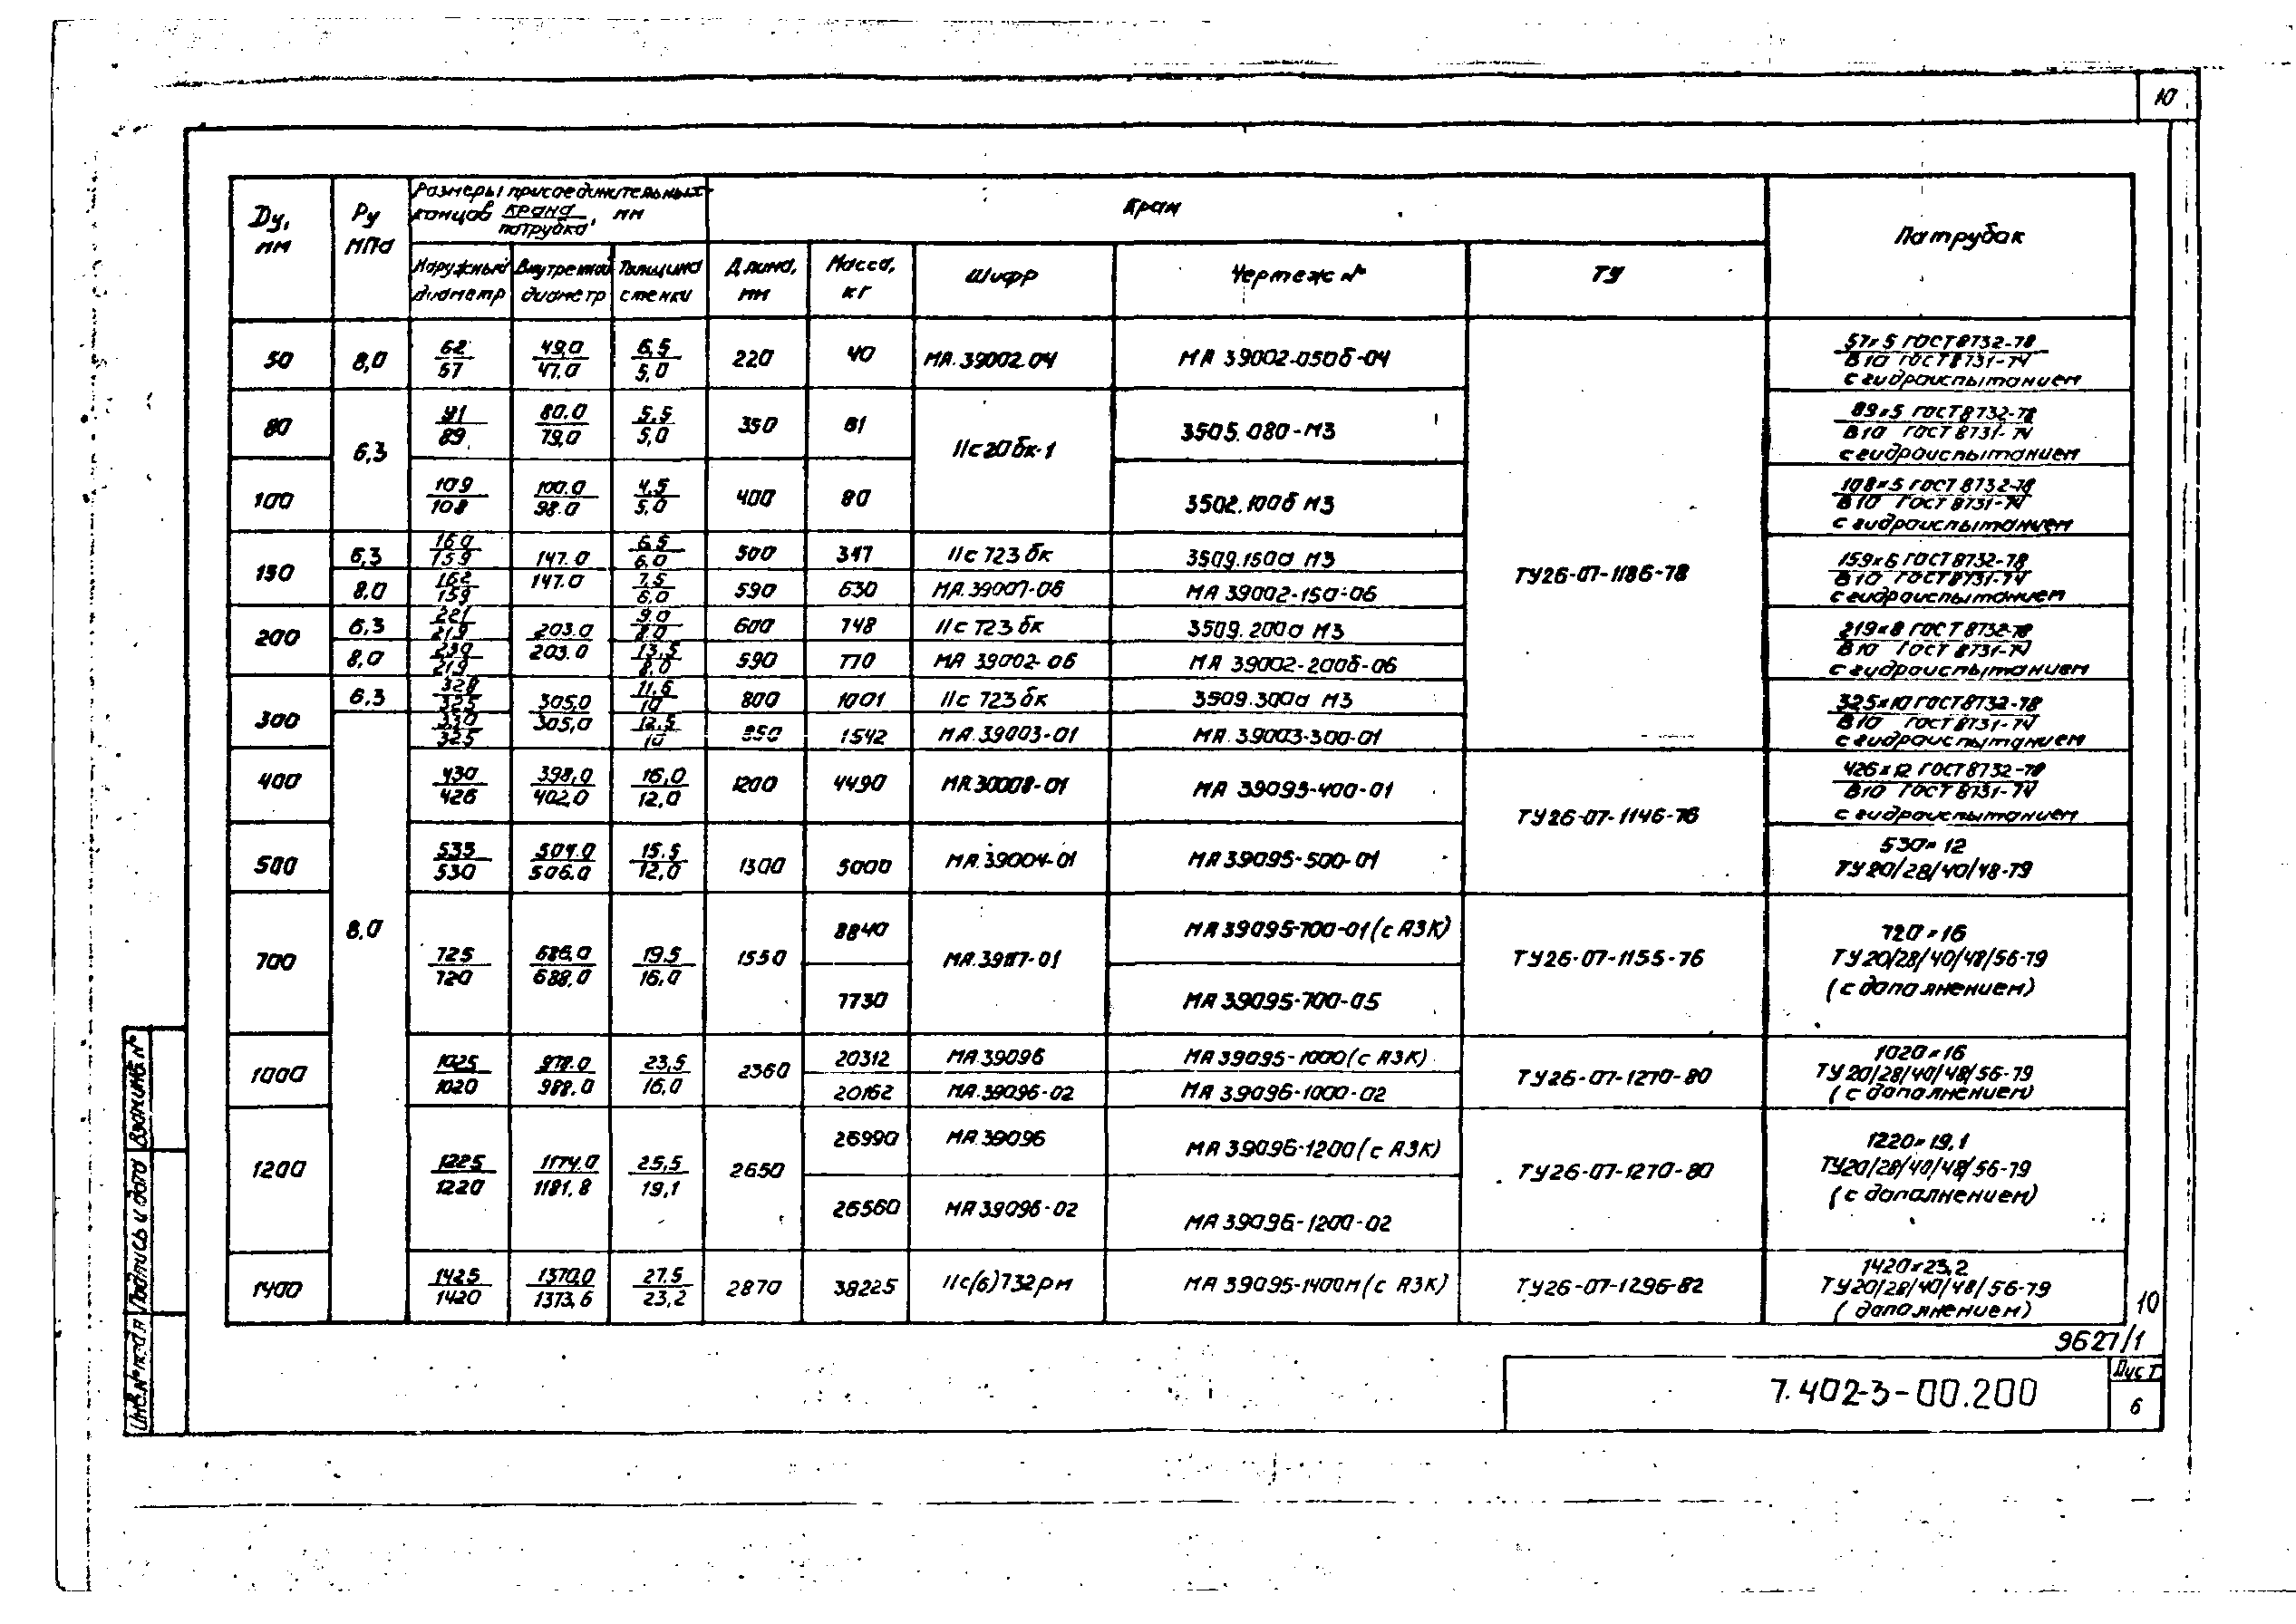 10
Размеры присоединительных
концов крана/патрубка, мм
Кран
Патрубок
Dу, мм
Ру МПа
Наружный диаметр
Внутренний диаметр
Толщина стенки
Длина, мм
Масса, кг
Шифр
Чертеж №
ТУ
50 8,0 62/57 49,0/47,0 6,5/5,0 220 40 МА.39002.04 МА 39002-050б-04
57×5 ГОСТ 8732-78
В10 ГОСТ 8731-74
с гидроиспытанием
80 6,3 91/89 80,0/79,0 5,5/5,0 350 61 11с20бк-1 3505.080-М3
89×5 ГОСТ 8732-78
В10 ГОСТ 8731-74
с гидроиспытанием
100 109/108 100,0/98,0 4,5/5,0 400 80 3502.100б М3
108×5 ГОСТ 8732-78
В10 ГОСТ 8731-74
с гидроиспытанием
150 6,3 160/159 147,0 6,5/6,0 500 347 11с 723бк 3509.150а М3
ТУ26-07-1186-78
8,0 162/159 147,0 7,5/6,0 590 630 МА.39007-06 МА 39002-150-06
159×6 ГОСТ 8732-78
В10 ГОСТ 8731-74
с гидроиспытанием
200 6,3 221/219 203,0 9,0/8,0 600 748 11с 723бк 3509.200а М3
8,0 230/219 203,0 13,5/8,0 590 770 МА 39002-06 МА 39002-200б-06
219×8 ГОСТ 8732-78
В10 ГОСТ 8731-74
с гидроиспытанием
300 6,3 328/325 305,0 11,5/10 800 1001 11с 723бк 3509.300а М3
330/325 305,0 12,5/10 850 1542 МА.39003-01 МА.39003-300-01
325×10 ГОСТ 8732-78
В10 ГОСТ 8731-74
с гидроиспытанием
400 430/426 398,0/402,0 16,0/12,0 1200 4490 МА 30008-01 МА 39095-400-01
ТУ26-07-1146-76
426×12 ГОСТ 8732-78
В10 ГОСТ 8731-74
с гидроиспытанием
500 535/530 504,0/506,0 15,5/12,0 1300 5000 МА.39004-01 МА39095-500-01
530×12
ТУ20/28/40/48-79
8,0
700 725/720 686,0/688,0 19,5/16,0 1550 8840 МА.39117-01 МА39095-700-01(с АЗК)
7730 МА 39095-700-05
ТУ26-07-1155-76
720×16
ТУ20/28/40/48/56-79
(с дополнением)
1000 1025/1020 978,0/988,0 23,5/16,0 2360 20312 МА.39096 МА39095-1000(с АЗК)
20162 МА.39096-02 МА 39096-1000-02
ТУ26-07-1270-80
1020×16
ТУ20/28/40/48/56-79
(с дополнением)
1200 1225/1220 1174,0/1181,8 25,5/19,1 2650 26990 МА.39096 МА 39096-1200(с АЗК)
26560 МА39096-02 МА 39096-1200-02
ТУ26-07-1270-80
1220×19,1
ТУ20/28/40/48/56-79
(с дополнением)
1400 1425/1420 1370,0/1373,6 27,5/23,2 2870 38225 11с(6)732рм МА 39095-1400м(с АЗК) ТУ26-07-1296-82
1420×23,2
ТУ20/28/40/48/56-79
(дополнением)
10
9627/1
7.402-3-00.200
Лист
6
Инв.№подл Подпись и дата Взам.инв.№